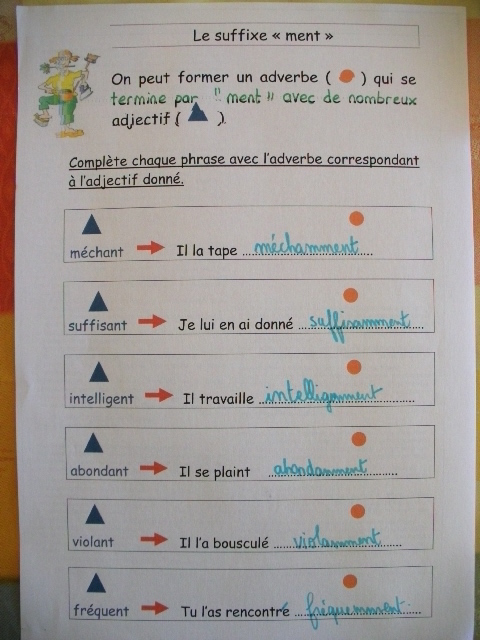 Le suffixe « ment »
On peut former un adverbe ( ) qui se
termine par "ment" avec de nombreux
adjectif ( ).
Complète chaque phrase avec l'adverbe correspondant
à l'adjectif donné.
méchant Il la tape méchamment
suffisant Je lui en ai donné suffisamment
intelligent Il travaille intelligamment
abondant Il se plaint abondamment
violant Il l'a bousculé violamment
fréquent Tu l'as rencontré fréquemment